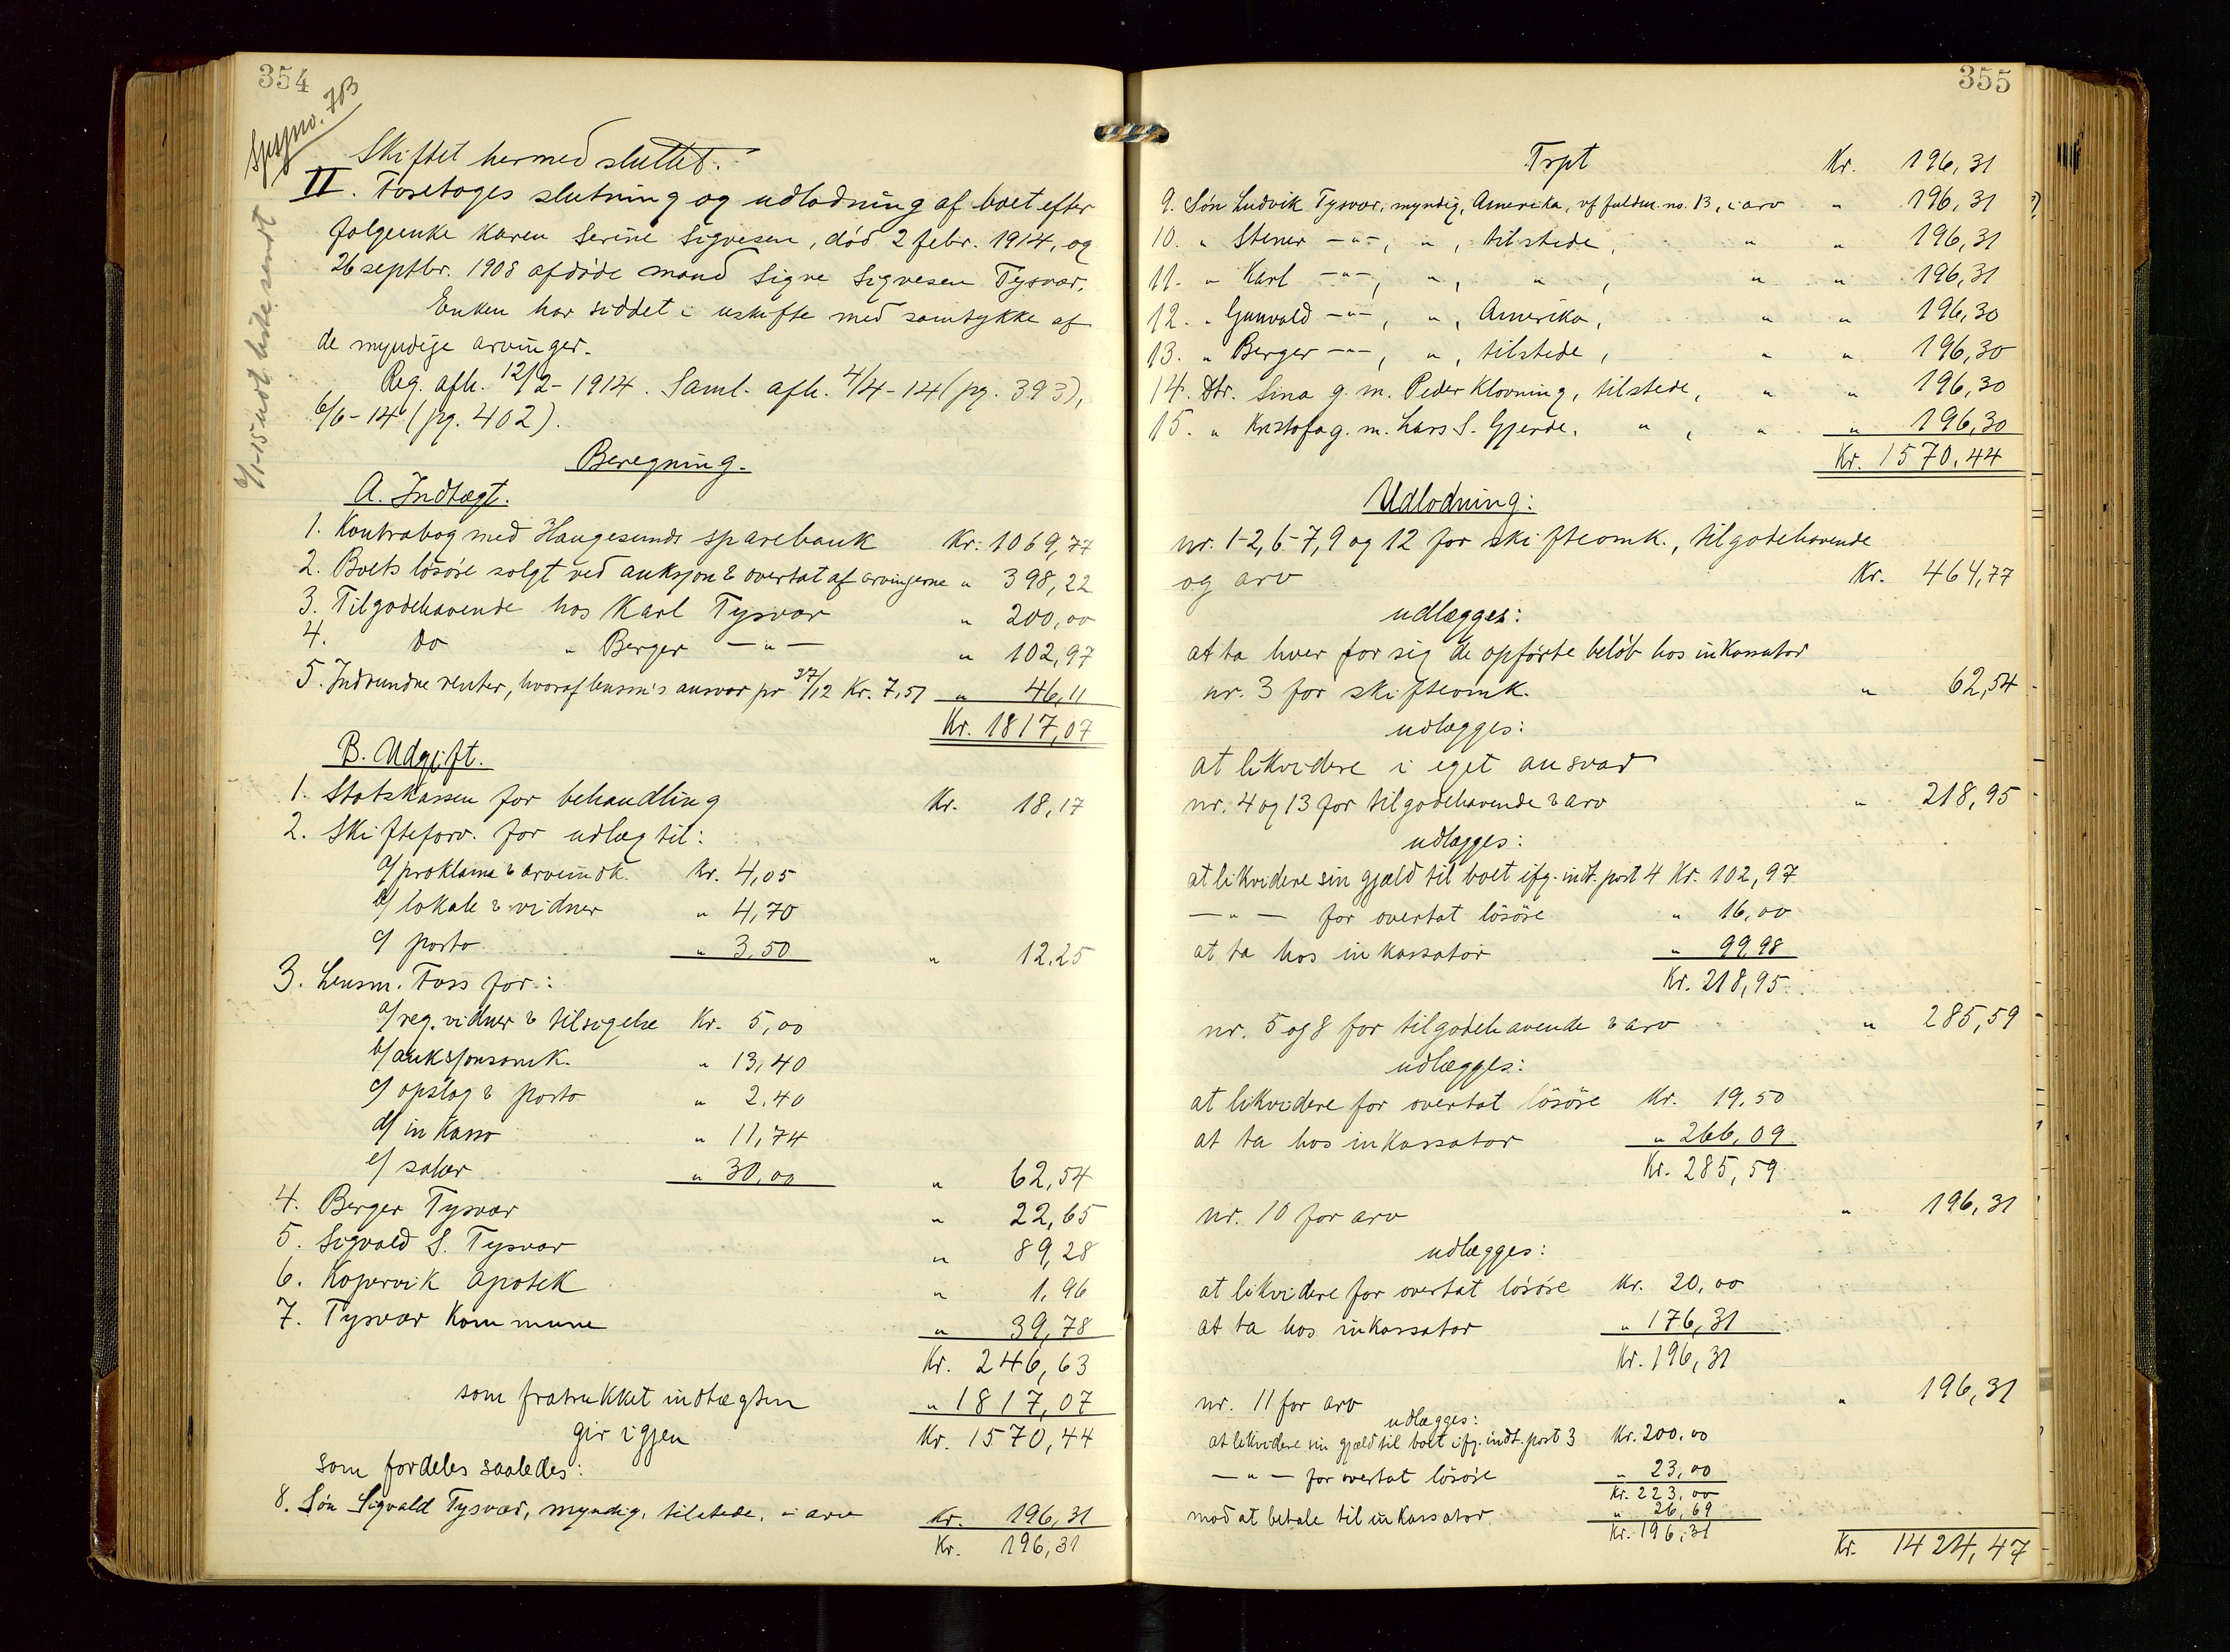 354
Spsjno. 7B
6/1-15 udt. liste sendt
Skiftet hermed sluttet.
II. Foretoges slutning og udlodning af boet efter
følgeenke Karen Serine Sigvesen, død 2 febr. 1914, og
26 septbr. 1908 afdøde mand Sigve Sigvesen Tysvær.
Enken har siddet i uskifte med samtykke af
de myndige arvinger.
Reg. afh. 12/2-1914. Saml. afh. 4/4-14 (pg. 393),
6/6-14 (pg. 402).
Beregning.
A. Indtægt.
1. Kontrabog med Haugesunds sparebank Kr. 1069,77
2. Boets løsøre solgt ved auksjon & overtat af arvingerne " 398,22
3. Tilgodehavende hos Karl Tysvær " 200,00
4. Do " Berger —"— " 102,97
5. Indvundne renter, hvoraf lensm's ansvar pr 27/12 Kr. 7,51 " 46,11
Kr. 1817,07
B. Udgift.
1. Statskassen for behandling Kr. 18,17
2. Skifteforv. for udlæg til:
a/ proklama & arveindk. Kr. 4,05
b/ lokale & vidner " 4,70
c/ porto " 3,50 " 12.25
3. Lensm. Foss for:
a/ reg. vidner & tilsigelse Kr. 5,00
b/ auksjonsomk. " 13,40
c/ opslag & porto " 2.40
d/ inkasso " 11,74
e/ salær " 30,00 " 62,54
4. Berger Tysvær " 22,65
5. Sigvald S. Tysvær " 89,28
6. Kopervik apotek " 1,96
7. Tysvær Kommune " 39,78
Kr. 246,63
som fratrukket indtægten " 1817,07
gir igjen Kr. 1570,44
som fordeles saaledes:
8. Søn Sigvald Tysvær, myndig, tilstede, i arv Kr. 196,31
Kr. 196,31
355
Trpt Kr. 196,31
9. Søn Ludvik Tysvær, myndig, Amerika, vf fuldm. no. 13, i arv " 196,31
10. " Stener —"—, ", tilstede, " " 196,31
11. " Karl —"—, ", ", " " 196,31
12. " Gunvald —"—, ", Amerika, " " 196,30
13. " Berger —"—, ", tilstede, " " 196,30
14. Dtr. Sina g. m. Peder Klovning, tilstede, " " 196,30
15. " Kristofa g. m. Lars S. Gjerde, ", " " 196,30
Kr. 1570,44
Udlodning:
nr. 1-2, 6-7, 9 og 12 for skifteomk., tilgodehavende
og arv Kr. 464,77
udlægges:
at ta hver for sig de opførte beløb hos inkassator
nr. 3 for skifteomk. " 62,54
udlægges:
at likvidere i eget ansvar
nr. 4 og 13 for tilgodehavende & arv " 218,95
udlægges:
at likvidere sin gjæld til boet ifg. indt. post 4 Kr. 102,97
—"— for overtat løsøre " 16,00
at ta hos inkassator " 99,98
Kr. 218,95
nr. 5 og 8 for tilgodehavende & arv " 285,59
udlægges:
at likvidere for overtat løsøre Kr. 19,50
at ta hos inkassator " 266,09
Kr. 285,59
nr. 10 for arv " 196,31
udlægges:
at likvidere for overtat løsøre Kr. 20,00
at ta hos inkassator " 176,31
Kr. 196,31
nr. 11 for arv " 196,31
udlægges:
at likvidere sin gjæld til boet ifg. indt. post 3 Kr. 200,00
—"— for overtat løsøre " 23,00
Kr. 223,00
mod at betale til inkassator " 26,69
Kr. 196,31
Kr. 1424,47